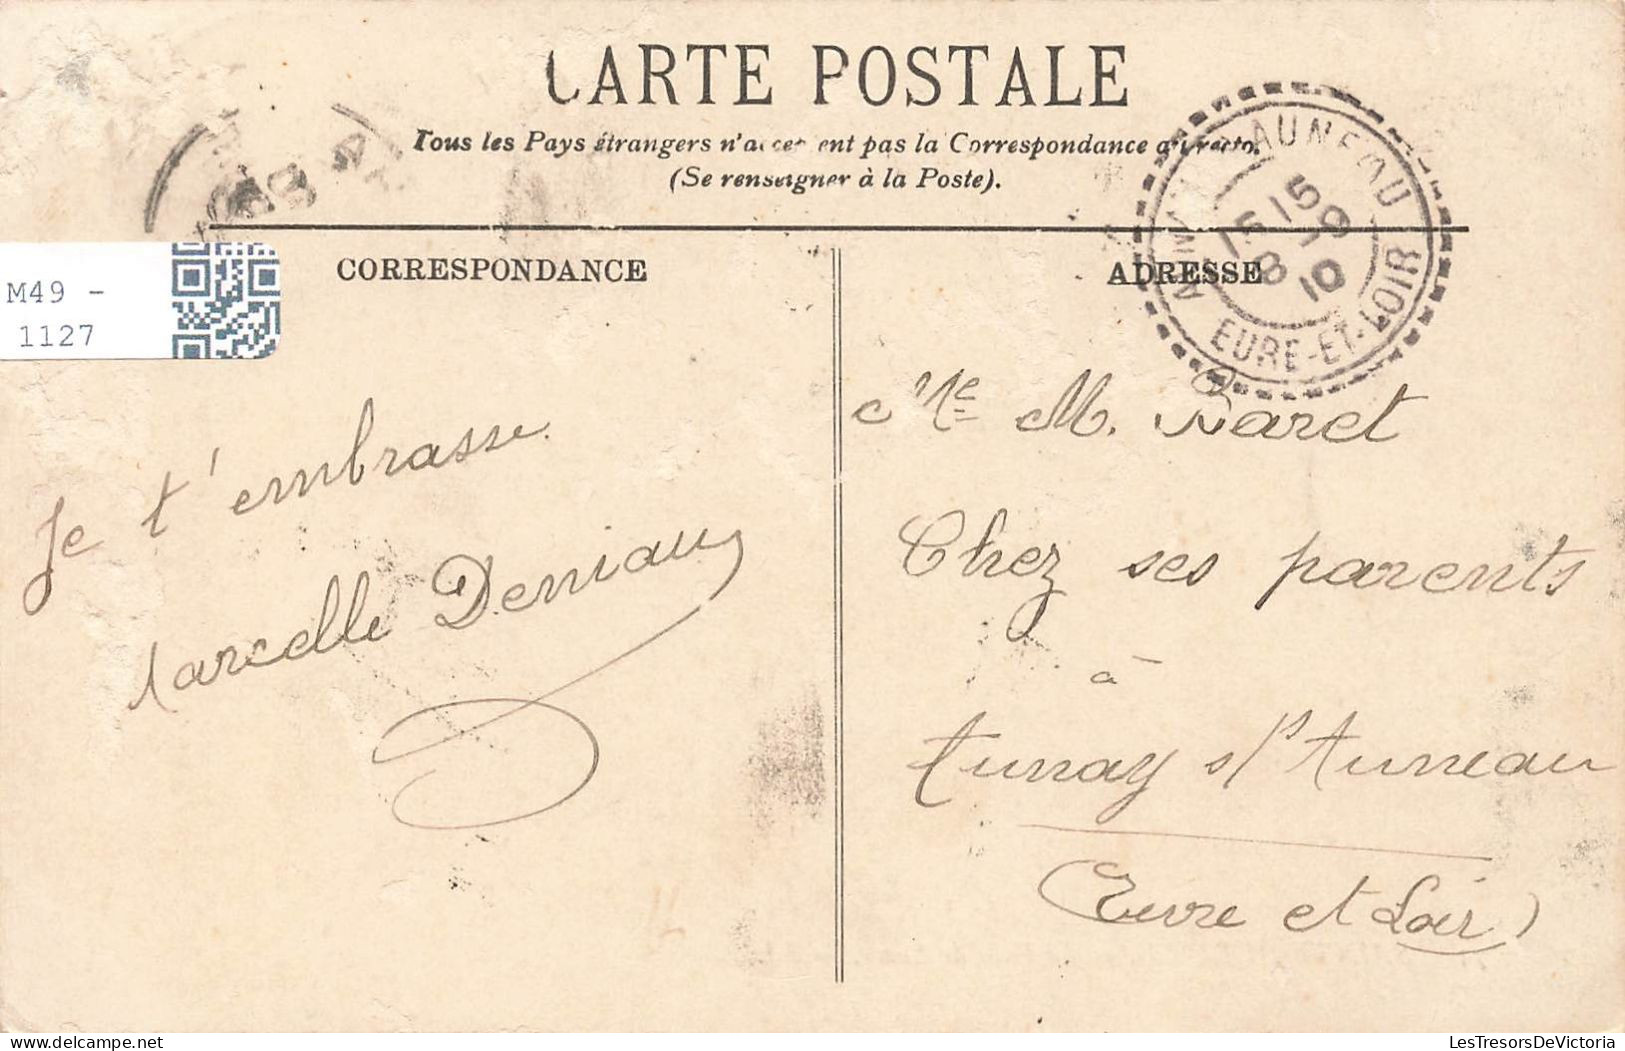 CARTE POSTALE
Tous les Pays étrangers n'acceptent pas la Correspondance au recto.
(Se renseigner à la Poste).
CORRESPONDANCE
ADRESSE
AUNEAU
15 15
8 -9
10
EURE-ET-LOIR
M49 -
1127
Je t'embrasse
Marcelle Deniau
Mle M. Baret
Chez ses parents
à
Aunay s/s Auneau
(Eure et Loir)
LesTresorsDeVictoria